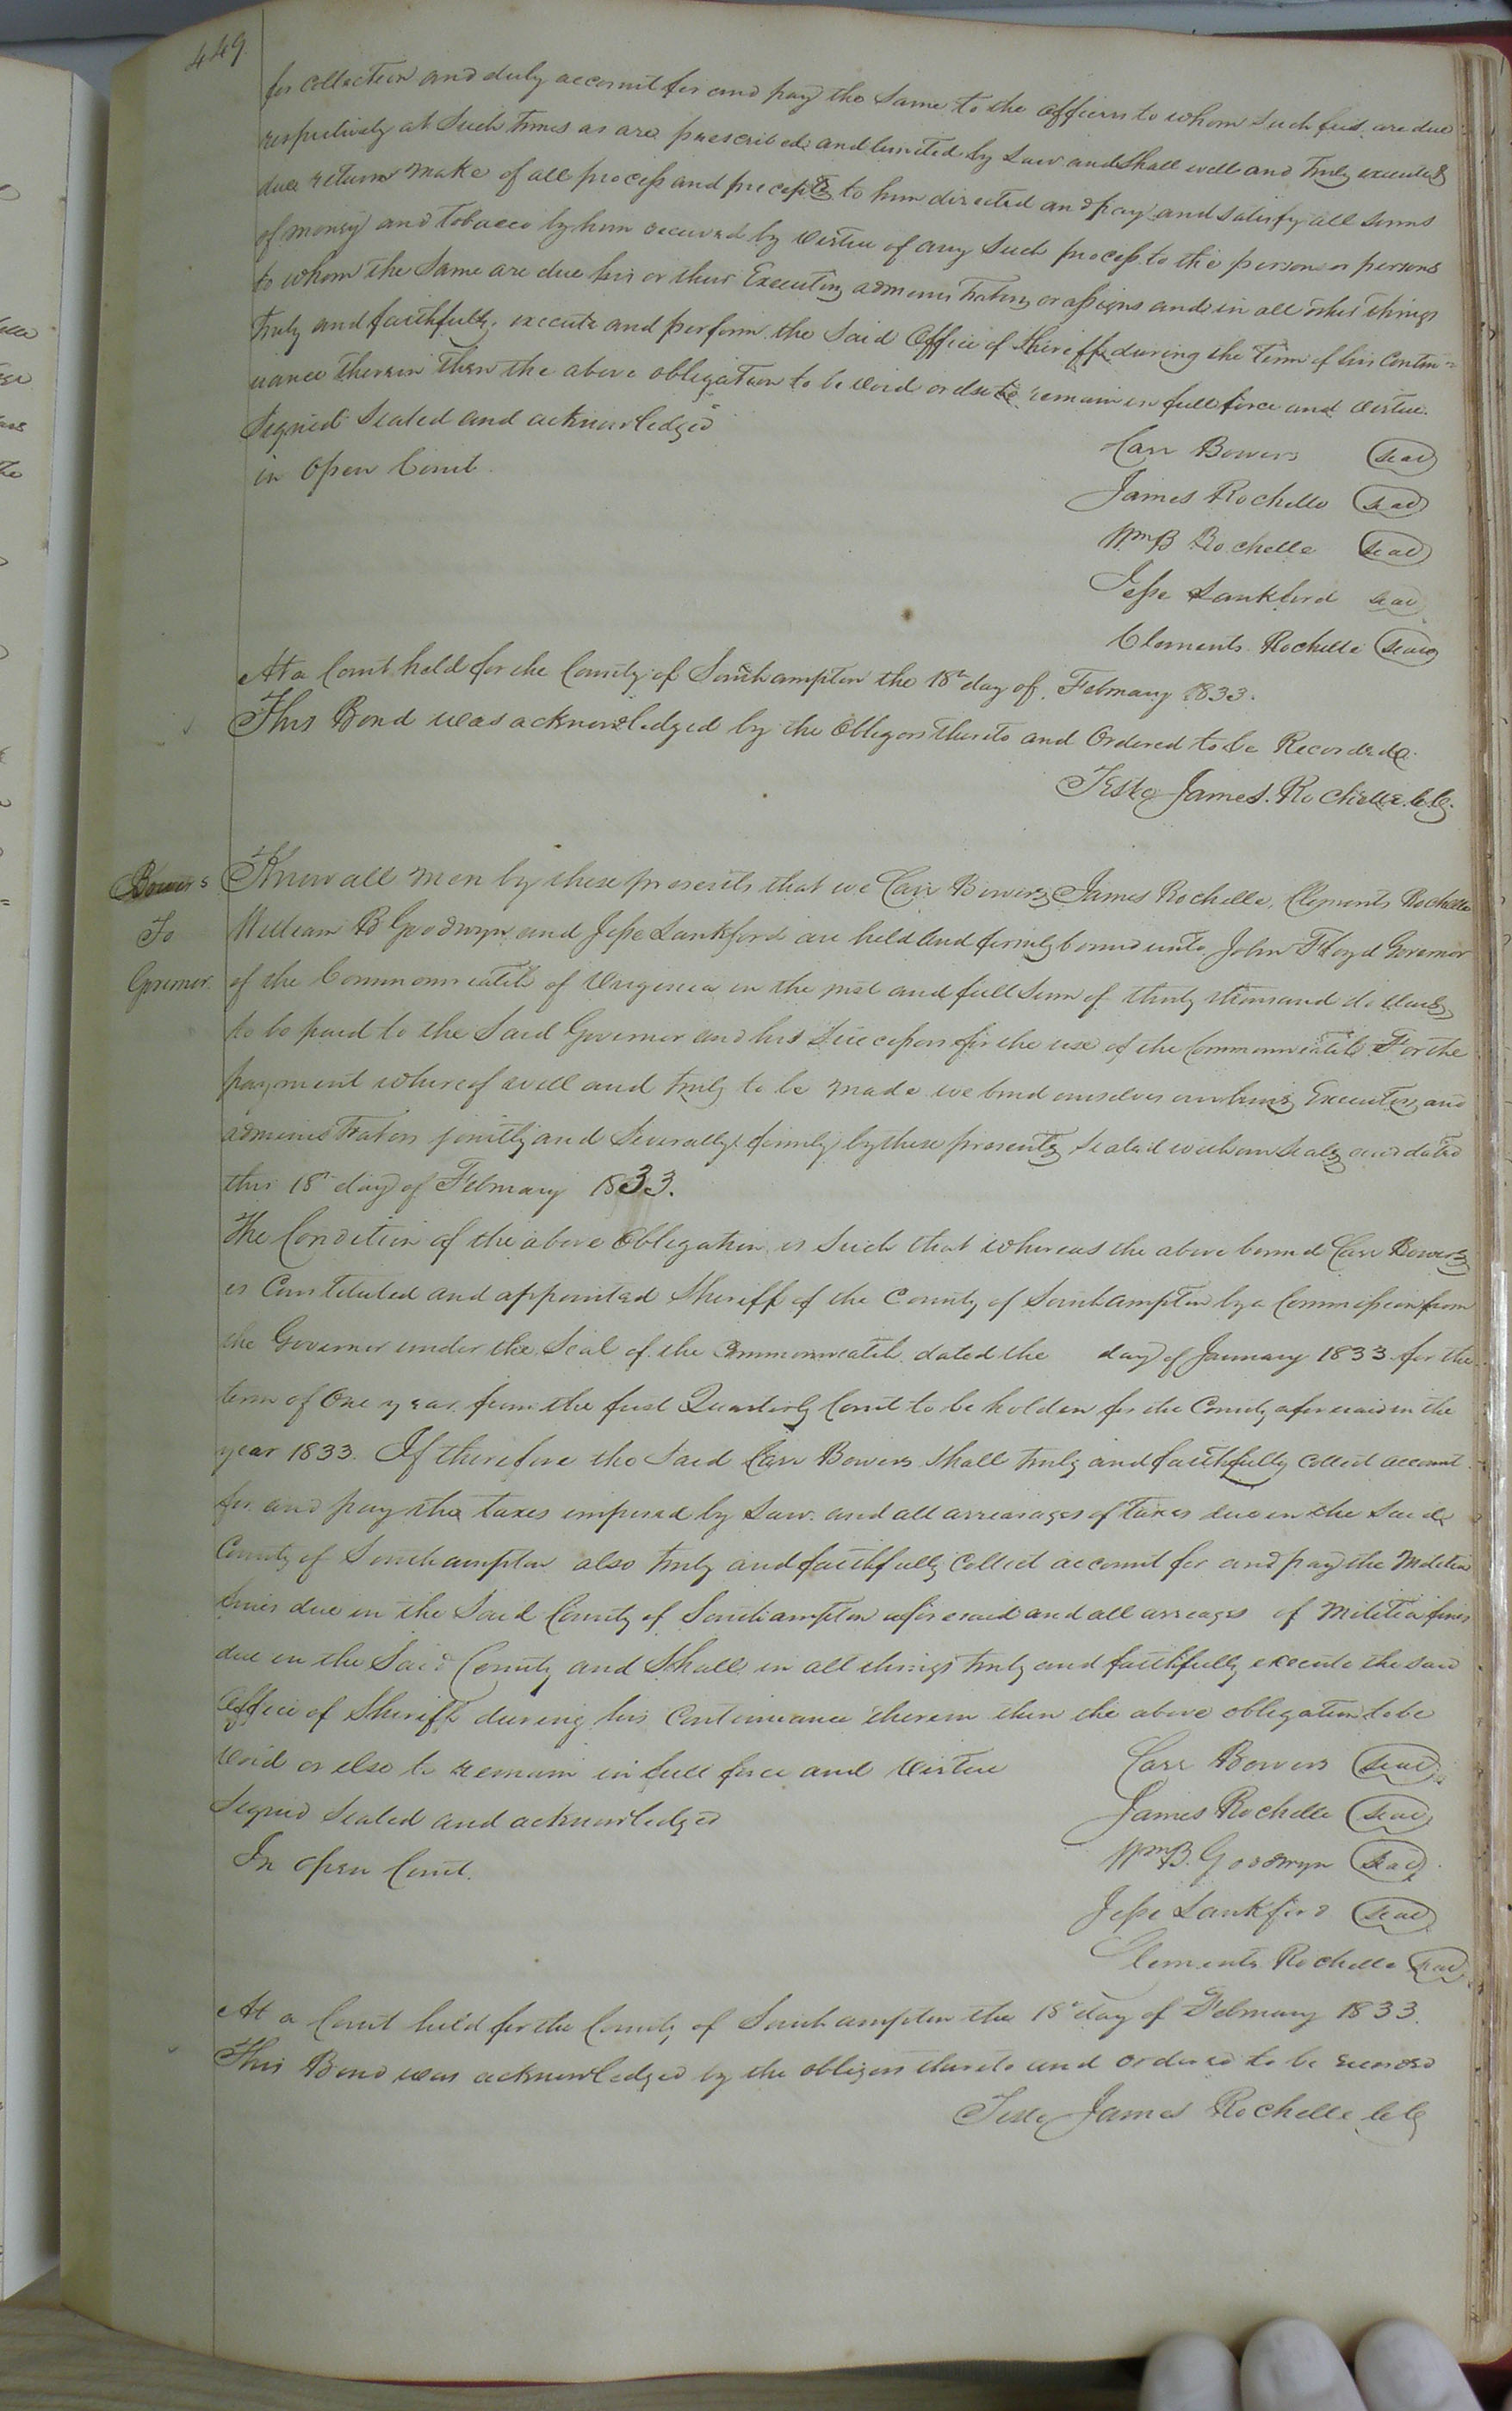 449.
for collection and duly account for and pay the Same to the officers to whom Such fees are due
respectively at Such times as are prescribed and limited by Law and Shall well and truly execute &
due return make of all process and precepts to him directed and pay and satisfy all sums
of money and Tobacco by him received by virtue of any Such process to the person or persons
to whom the Same are due his or their Executors administrators or assigns and in all other things
truly and faithfully execute and perform the Said Office of Sheriff during the Term of his Contin=
uance therein then the above obligation to be void or else to remain in full force and virtue.
Signed Sealed and acknowledged
in Open Court
Carr Bowers seal
James Rochelle seal
Wm B Rochelle seal
Jesse Lankford seal
Clements Rochelle seal
At a Court held for the County of Southampton the 18th day of February 1833.
This Bond was acknowledged by the Obligors thereto and Ordered to be Recorded.
Teste James Rochelle C.C.
Bowers
To
Governor
Know all men by these presents that we Carr Bowers James Rochelle, Clements Rochelle
William B Goodwyn and Jesse Lankford are held and firmly bound unto John Floyd Governor
of the Commonwealth of Virginia in the just and full Sum of thirty thousand dollars
to be paid to the Said Governor and his Successors for the use of the Commonwealth For the
payment whereof well and truly to be made we bind ourselves our heirs Executors and
administrators jointly and Severally firmly by these presents Sealed with our Seals and dated
this 18th day of February 1833.
The Condition of the above Obligation is Such that whereas the above bound Carr Bowers
is Constituted and appointed Sheriff of the County of Southampton by a Commission from
the Governor under the Seal of the Commonwealth dated the day of January 1833 for the
term of One year from the first Quarterly Court to be holden for the County aforesaid in the
year 1833. If therefore the Said Carr Bowers Shall truly and faithfully Collect account
for and pay the taxes imposed by Law and all arrearages of Taxes due in the Said
County of Southampton also truly and faithfully Collect account for and pay the Militia
fines due in the Said County of Southampton aforesaid and all arreages of Militia fines
due in the Said County and Shall in all things truly and faithfully execute the said
Office of Sheriff during his Continuance therein then the above obligation to be
Void or else to remain in full force and Virtue
Signed Sealed and acknowledged
In open Court.
Carr Bowers seal
James Rochelle seal
Wm B. Goodwyn seal
Jesse Lankford seal
Clements Rochelle seal
At a Court held for the County of Southampton the 18th day of February 1833.
This Bond was acknowledged by the obligors thereto and ordered to be record
Teste James Rochelle C C